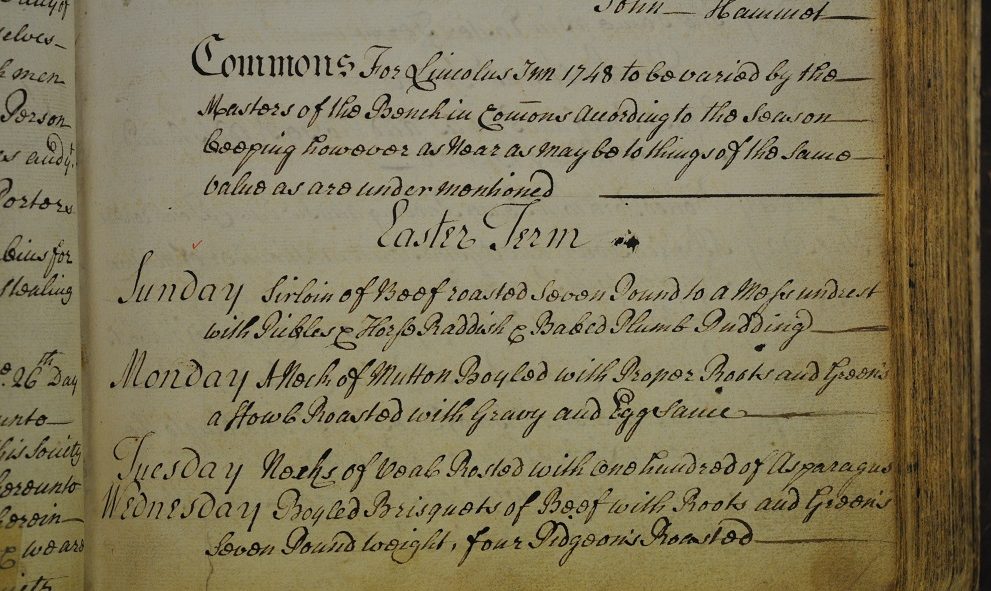 John Hammet
Commons For Lincolns Inn 1748 to be varied by the
Masters of the Bench in Com̄ons According to the Season
keeping however as Near as may be to things of the Same
value as are under mentioned
Easter Term
Sunday Sirloin of Beef roasted Seven Pound to a Mess undrest
with Pickles & Horse Raddish & Baked Plumb Pudding
Monday A Neck of Mutton Boyled with Proper Roots and Green's
a Fowl Roasted with Gravy and Egg Sauce
Tuesday Necks of Veal Rosted with one hundred of Asparagus
Wednesday Boyled Brisquets of Beef with Roots and Green's
Seven Pound weight, four Pidgeon's Roasted
elves
men
Person
Porters
for
26th Day
unto
his Society
hereunto
herein
& we are